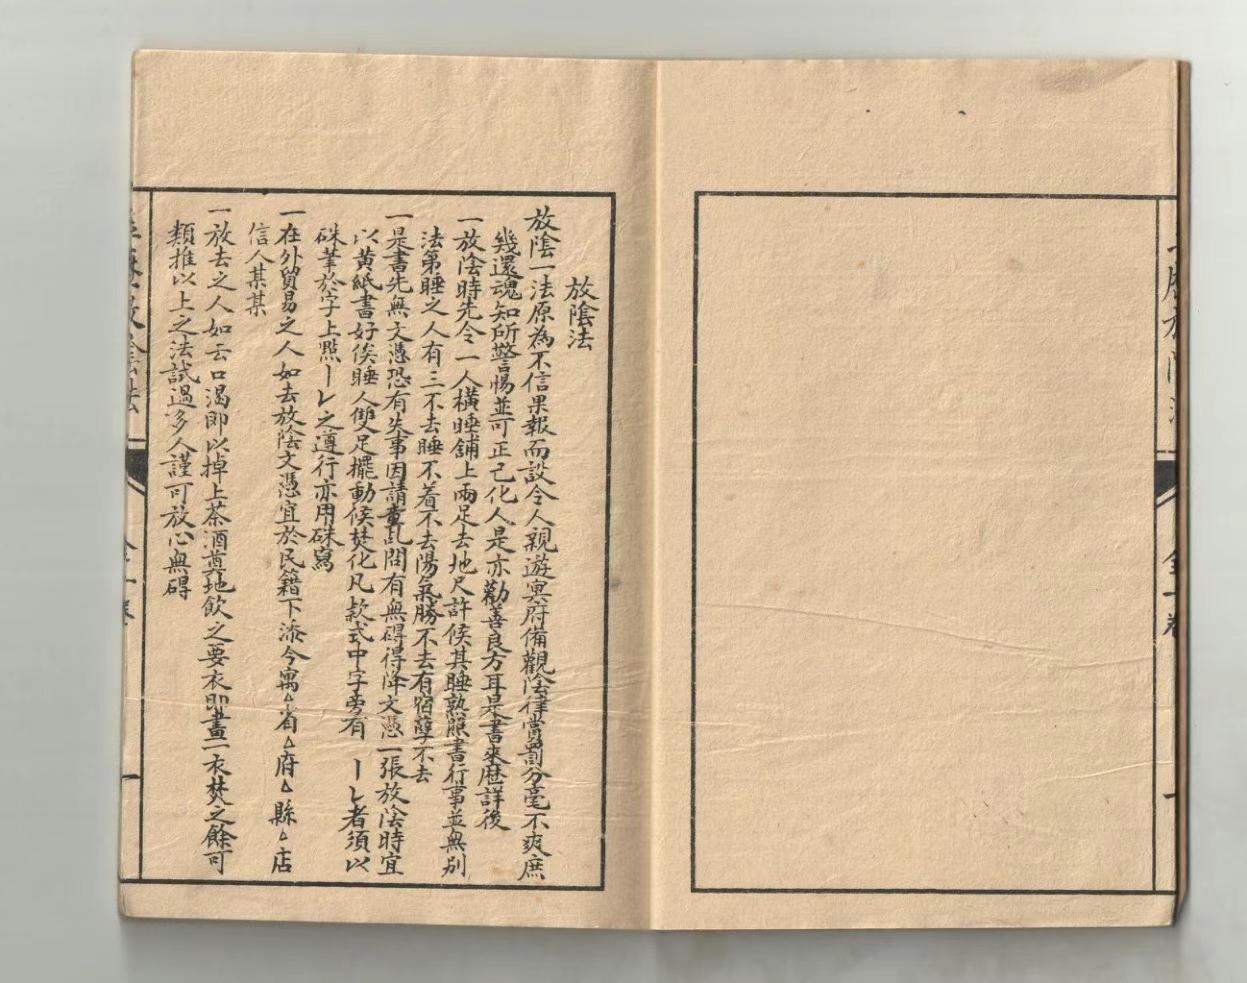 放陰法
放陰一法原為不信果報而設令人親遊冥府備觀陰律賞罰分毫不爽庶
幾還魂知所警惕並可正己化人是亦勸善良方耳是書來歴詳後
一放陰時先令一人橫睡舖上兩足去地尺許候其睡熟照書行事並無別
法第睡之人有三不去睡不着不去陽氣勝不去有宿孽不去
一是書先無文憑恐有失事因請乩問有無碍得降文憑一張放陰時宜
以黄紙書好俟睡人雙足擺動候焚化凡款式中字旁有 者須以
硃筆於字上點 之遵行亦用硃寫
一在外貿易之人如去放陰文憑宜於民籍下添今寓△省△府△縣△店
信人某某
一放去之人如云口渴即以掉上茶酒奠地飲之要衣即畫一衣焚之餘可
類推以上之法試過多人謹可放心無碍
一